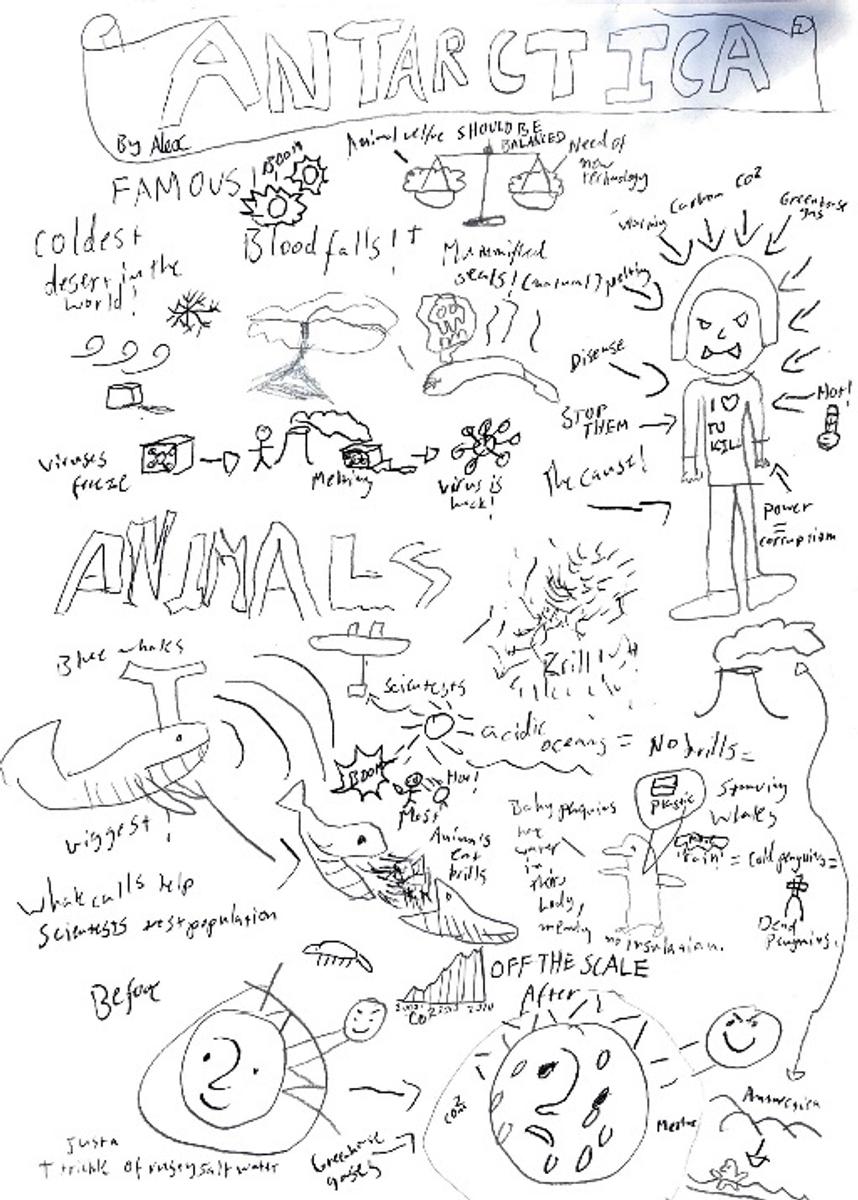 ANTARCTICA
By Alex
Animal welfare SHOULD BE
BALANCED
Need of
new
technology
FAMOUS!
BOOM
Coldest
desert in the
world!
Blood falls! †
Mummified
seals! (natural)
Warming
Carbon
CO²
Greenhouse
gas
melting
Disease
STOP
THEM
The cause!
I ♡
TO
KILL
Hot!
Power
=
corruption
Viruses
freeze
Melting
Virus is
back!
ANIMALS
Blue whales
Biggest!
Scientests
Krill!
acidic
oceans = No krills =
Starving
whales
BOOM
Hot!
Most
Animals
eat
krills
Baby penguins
have
water
in
their
body,
meaning
no insulation.
Plastic
Rain! = Cold penguins =
Dead
Penguins.
Whale calls help
Scientests test population
OFF THE SCALE
CO²
Before
After
CO²
Methane
Antarctica
Greenhouse
gases
Just a
† trickle of rusty salt water